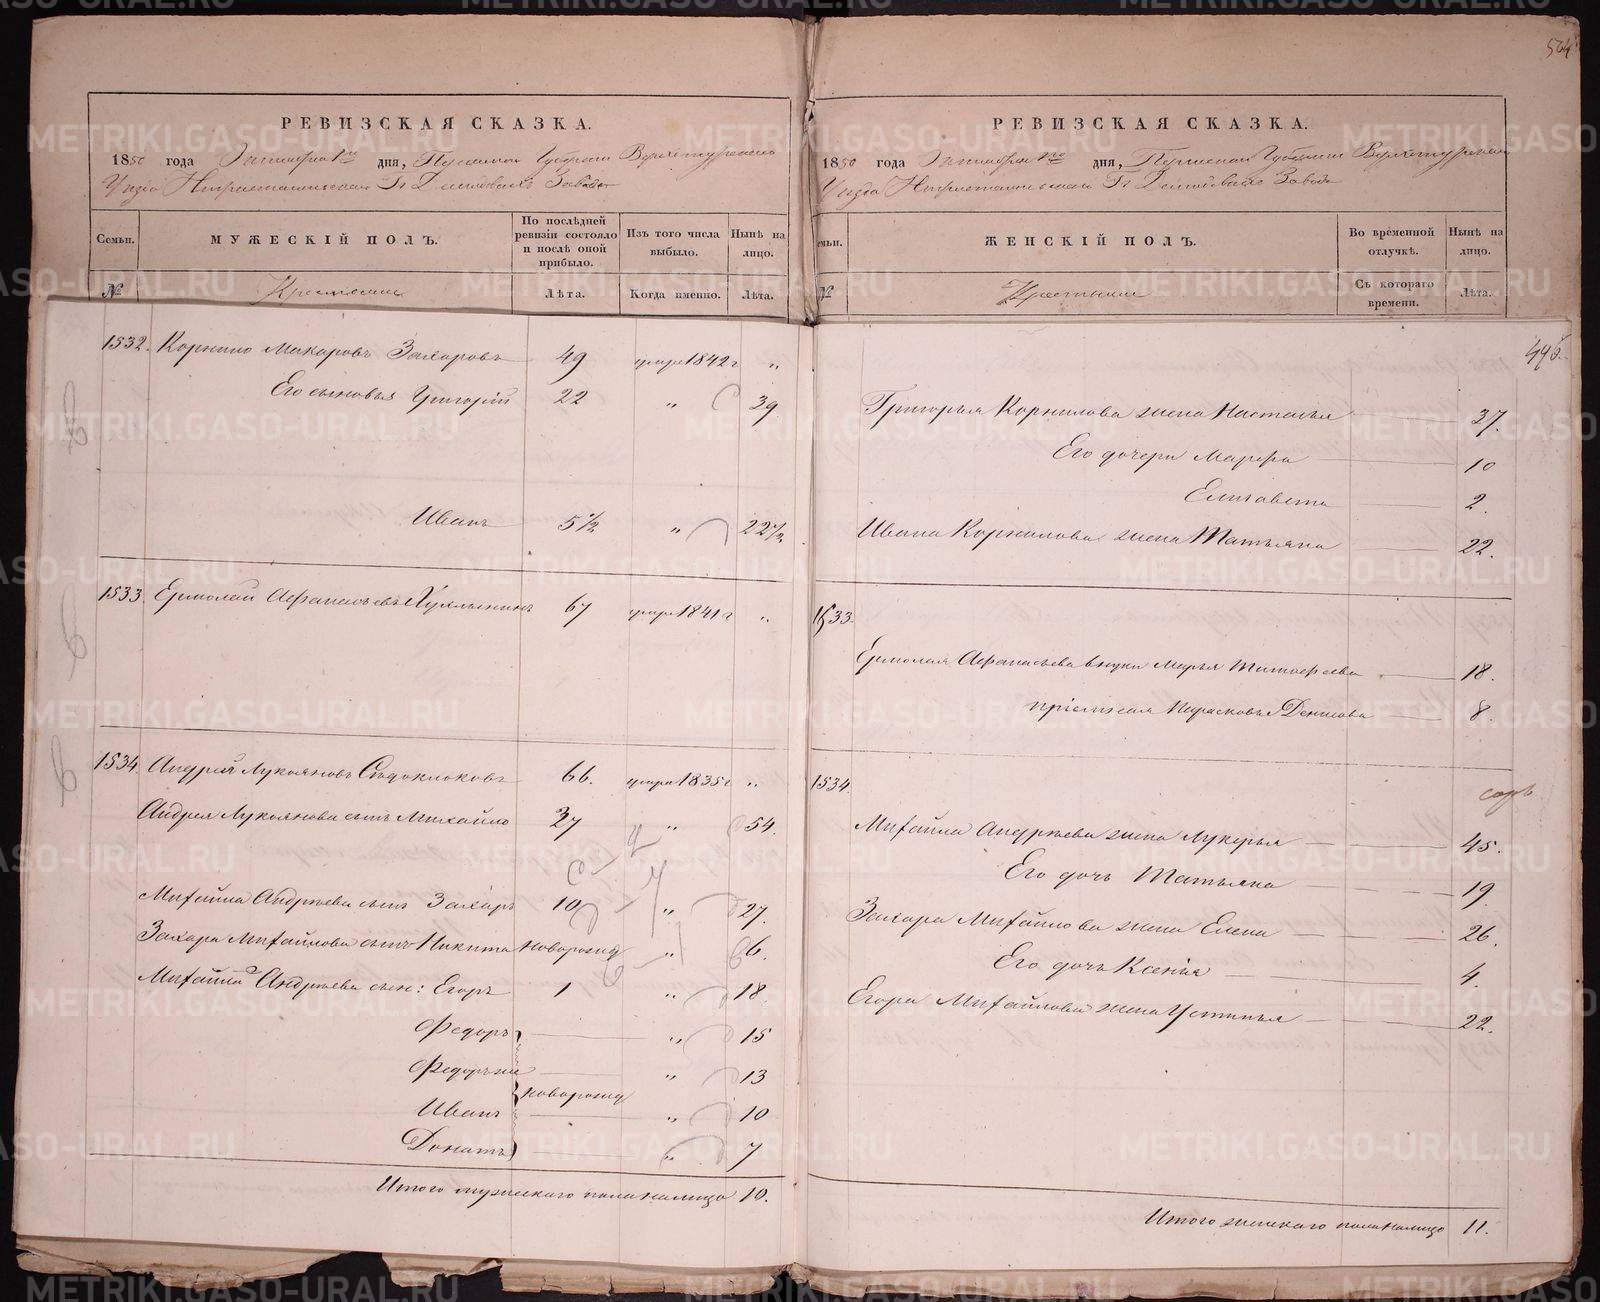 РЕВИЗСКАЯ СКАЗКА.
1850 года Октября 1го дня, Пермской Губернии Верхотурскаго
Уезда Нижнетагильскаго Гг Демидовыхъ Завода
Семьи.
МУЖЕСКІЙ ПОЛЪ.
По послѣдней ревизіи состояло и послѣ оной прибыло.
Изъ того числа выбыло.
Нынѣ на лицо.
№
Крестьяне
Лѣта.
Когда именно.
Лѣта.
1532. Корнило Макаровъ Захаровъ 49 умре 1842 г „
Его сыновья Григорій 22 „ 39
Иванъ 5 1/2 „ 22 1/2
1533. Ермолай Афанасьевъ 67 умре 1841 г „
1534. Андрей Лукояновъ 66. умре 1835 г „
Андрея Лукоянова сынъ Михайло 37 „ 54.
Михайла Андреева сынъ Захаръ 10 „ 27.
Захара Михайлова сынъ Никита новорожд „ 6.
Михайла Андреева сын: Егоръ 1 „ 18.
Федоръ „ 15
Федоръ же „ 13
новорожд
Иванъ „ 10
Донатъ „ 7
Итого мужескаго пола налицо 10.
564
РЕВИЗСКАЯ СКАЗКА.
1850 года Октября 1го дня, Пермской Губернии Верхотурскаго
Уезда Нижнетагильскаго Гг Демидовыхъ Завода
ЖЕНСКІЙ ПОЛЪ.
Во временной отлучкѣ.
Нынѣ на лицо.
№
Крестьяне
Съ котораго времени.
Лѣта.
Григорья Корнилова жена Настасья 37.
Его дочери Марфа 10
Елизавета 2.
Ивана Корнилова жена Татьяна 22.
1533.
Ермолая Афанасьева внука Марья Тимофеева 18.
пріемная Парасковья Денисова 8.
1534.
Михайла Андреева жена Лукерья 45.
Его дочь Татьяна 19.
Захара Михайлова жена Елена 26.
Его дочь Ксенія 4.
Егора Михайлова жена Устинья 22.
Итого женскаго пола налицо 11.
METRIKI.GASO-URAL.RU